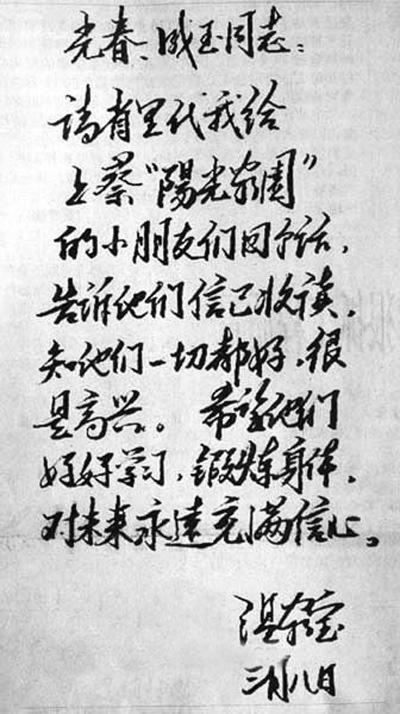 光春、成玉同志：
请省里代我给
上蔡“陽光家園”
的小朋友们回个话，
告诉他们信已收读，
知他们一切都好，很
是高兴。希望他们
好好学习，锻炼身体，
对未来永远充满信心。
温家宝
三月八日